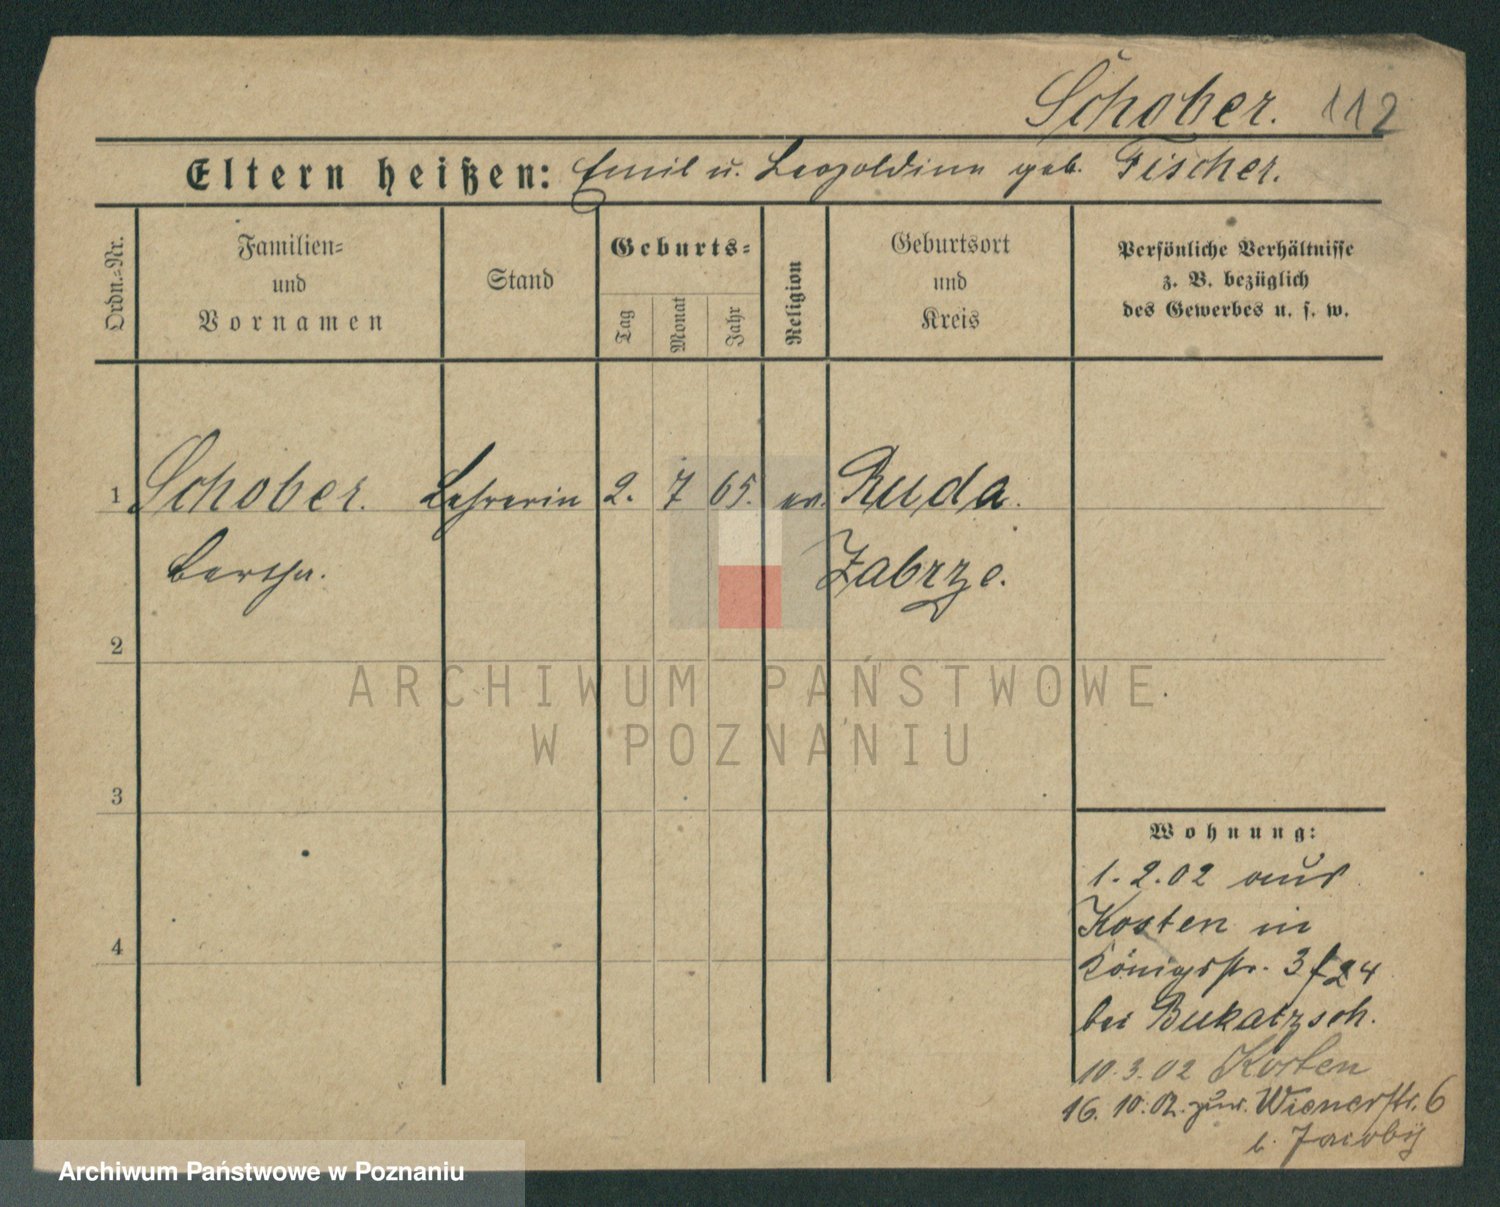 Schober. 112
Eltern heißen: Emil u. Leopoldine geb. Fischer.
Ordn.-Nr.
Familien-
und
Vornamen
Stand
Geburts-
Tag
Monat
Jahr
Religion
Geburtsort
und
Kreis
Persönliche Verhältnisse
z. B. bezüglich
des Gewerbes u. s. w.
1 Schober. Lehrerin 2. 7 65. ev. Ruda.
Bertha. Zabrze.
2
ARCHIWUM PAŃSTWOWE
W POZNANIU
3
Wohnung:
1.2.02 aus
Kosten in
Königsstr. 3 f 24
bei Bukatzsch.
4
10.3.02 Kosten
16. 10. 02. zur. Wienerstr. 6
b. Jacoby
Archiwum Państwowe w Poznaniu